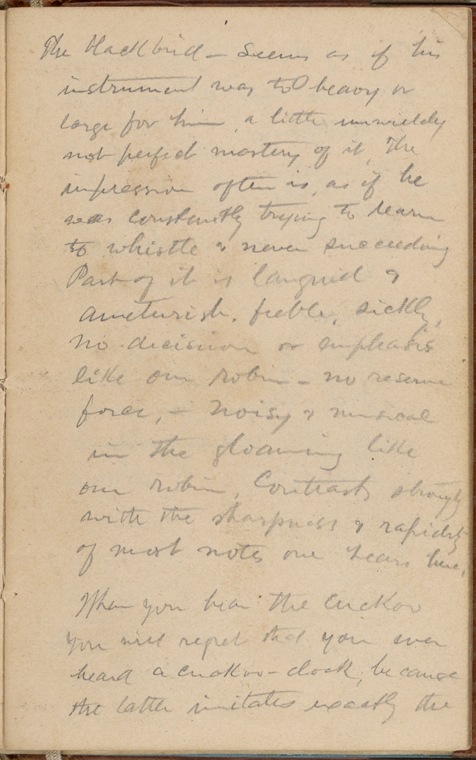 The blackbird - seems as if his
instrument was too heavy or
large for him, a little unwieldy
not perfect mastery of it, The
impression often is, as if he
was constantly trying to learn
to whistle & never succeeding
Part of it is languid &
ameturish, feeble, sickly,
no decision or emphasis
like our robin - no reserve
force, - noisy & musical
in the gloaming like
our robin, Contrasts strongly
with the sharpness & rapidity
of most notes one hears here.
When you hear the cuckoo
you will regret that you ever
heard a cuckoo-clock, because
the latter imitates exactly the